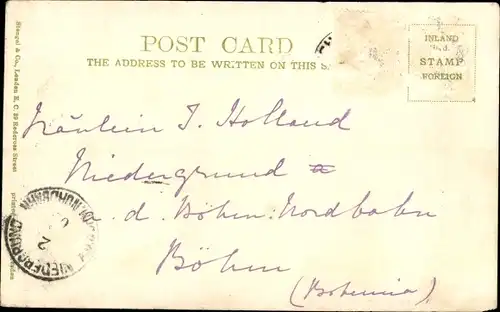 POST CARD
THE ADDRESS TO BE WRITTEN ON THIS S
INLAND
STAMP
FOREIGN
Stengel & Co., London E. C. 39 Redcross Street
Fräulein J. Holland
Niedergrund a
a. d. Böhm. Nordbahn
Böhm
(Bohemia)